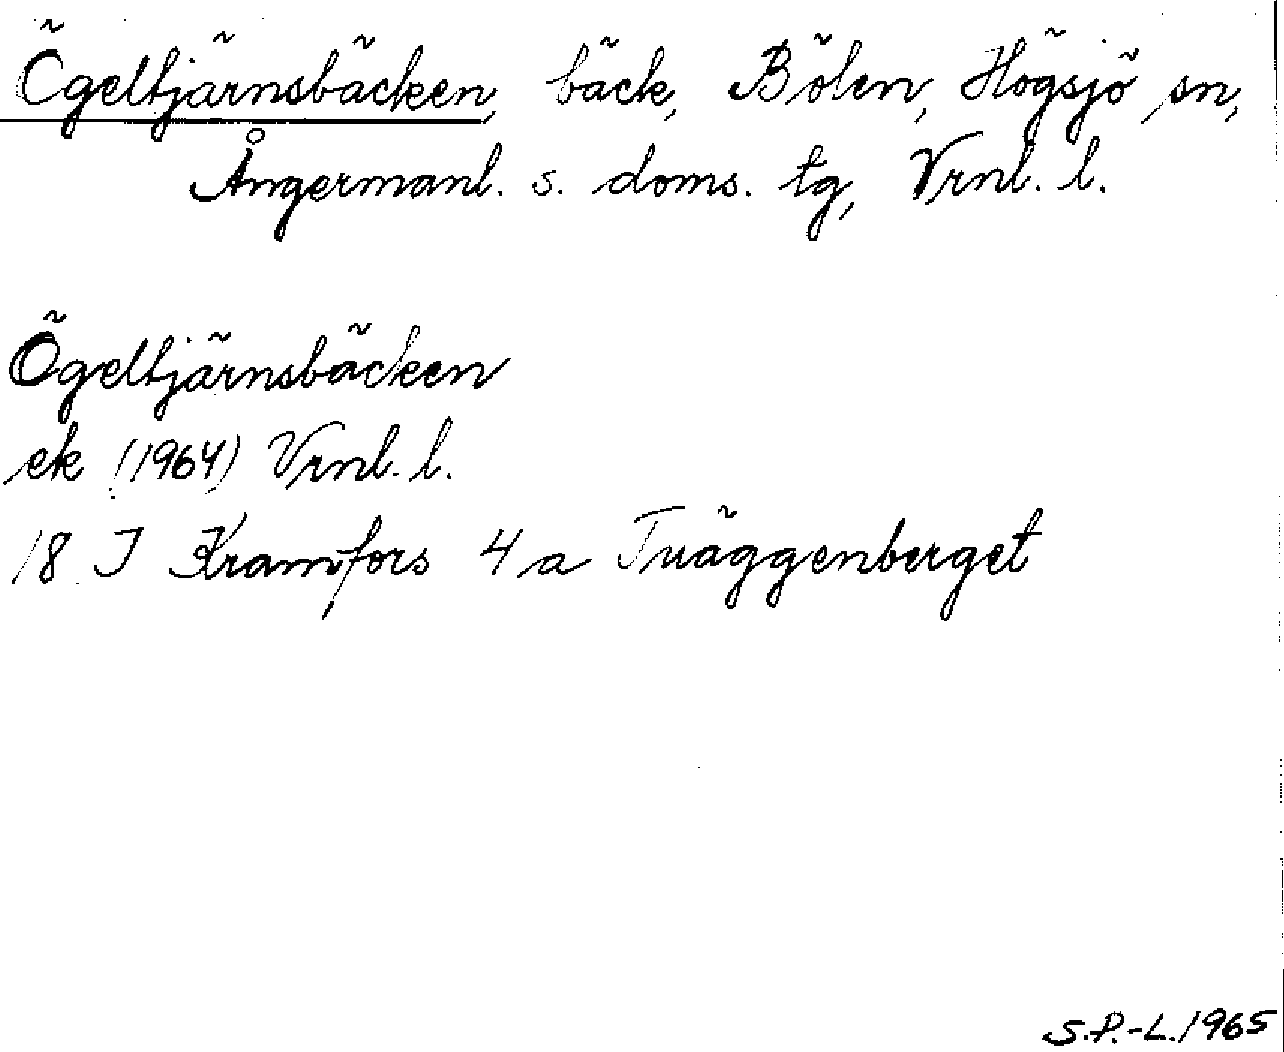 Ögeltjärnsbäcken, bäck, Bölen, Högsjö sn,
Ångermanl. s. doms. tg, Vrnl. l.
Ögeltjärnsbäcken
ek (1964) Vrnl. l.
18 I Kramfors 4 a Tväggenberget
S.P.-L. 1965